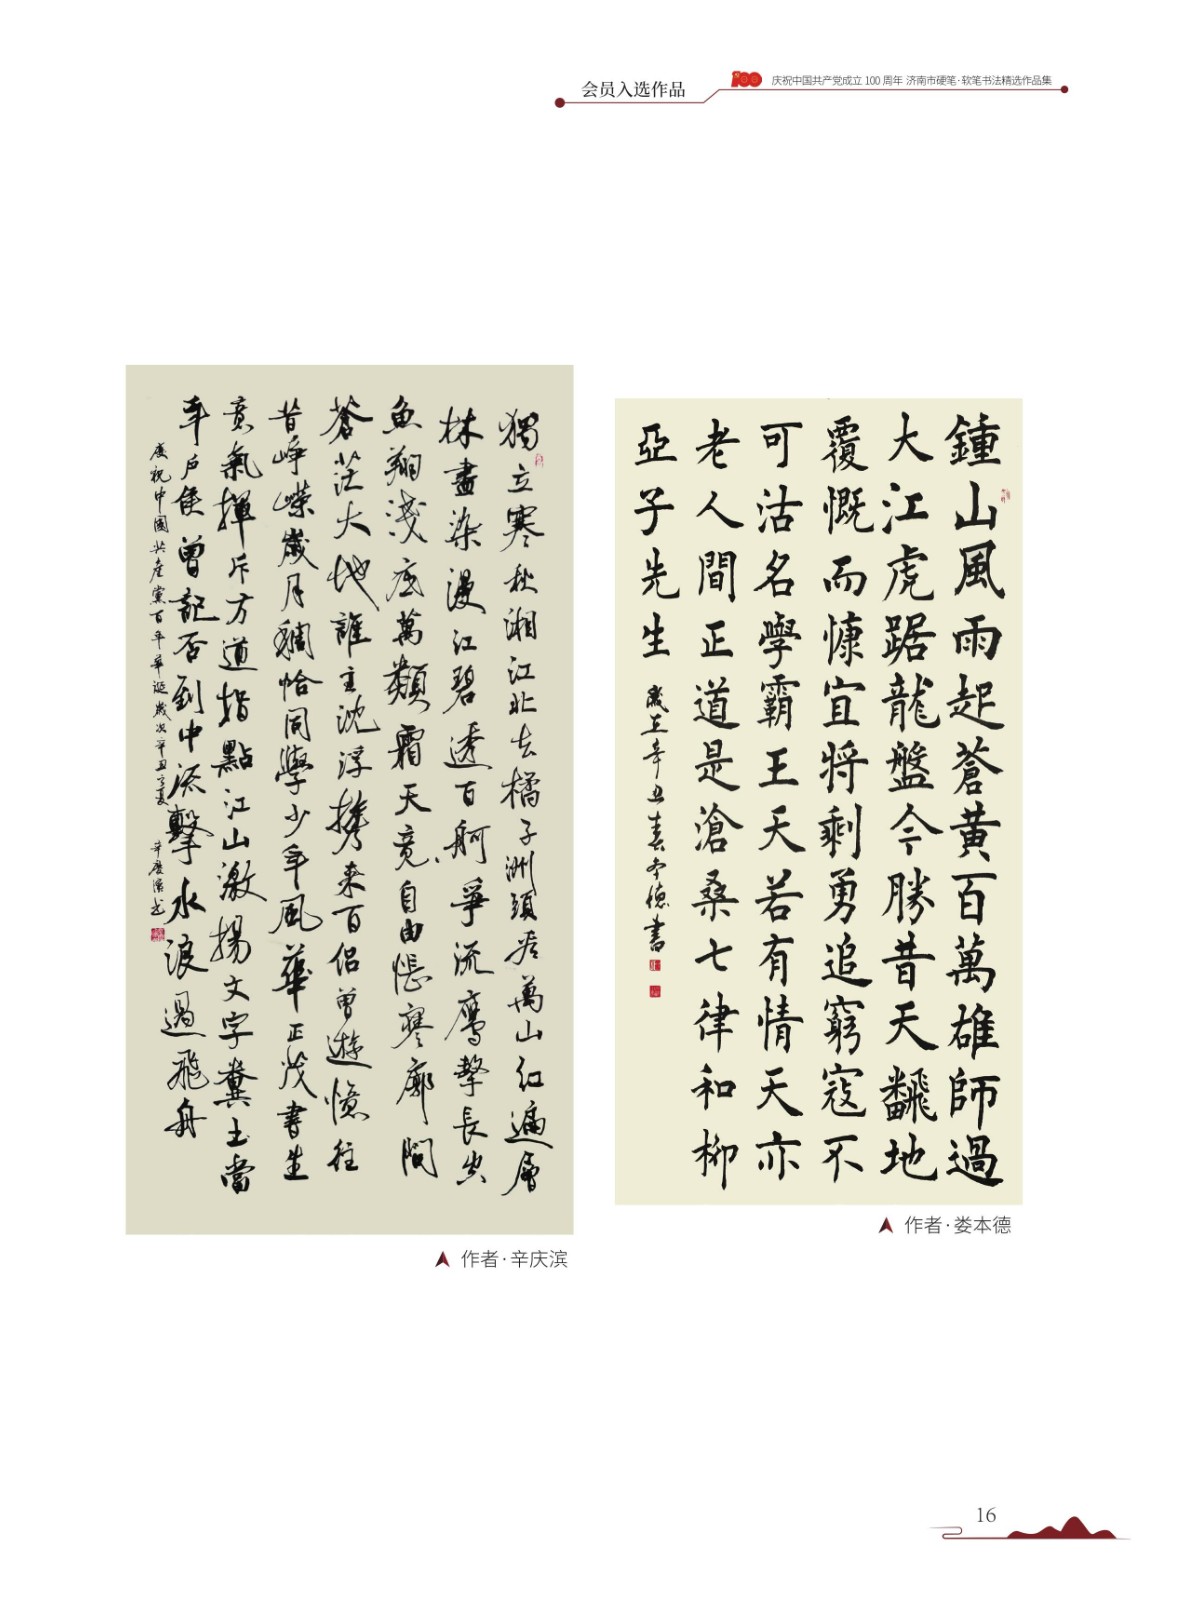 会员入选作品
100
庆祝中国共产党成立 100 周年 济南市硬笔·软笔书法精选作品集
鍾山風雨起蒼黃百萬雄師過
大江虎踞龍盤今勝昔天飜地
覆慨而慷宜將剩勇追窮寇不
可沽名學霸王天若有情天亦
老人間正道是滄桑七律和柳
亞子先生
歲在辛丑春本德書
作者·娄本德
獨立寒秋湘江北去橘子洲頭看萬山红遍層
林盡染漫江碧透百舸爭流鹰擊長空
魚翔淺底萬類霜天竟自由悵寥廓問
蒼茫大地誰主沈浮攜来百侣曾遊憶往
昔崢嶸歲月稠恰同學少年風華正茂書生
意氣揮斥方遒指點江山激揚文字糞土當
年户侯曾記否到中流擊水浪遏飛舟
慶祝中國共產黨百年華诞歲次辛丑之夏 辛慶濱书
作者·辛庆滨
16